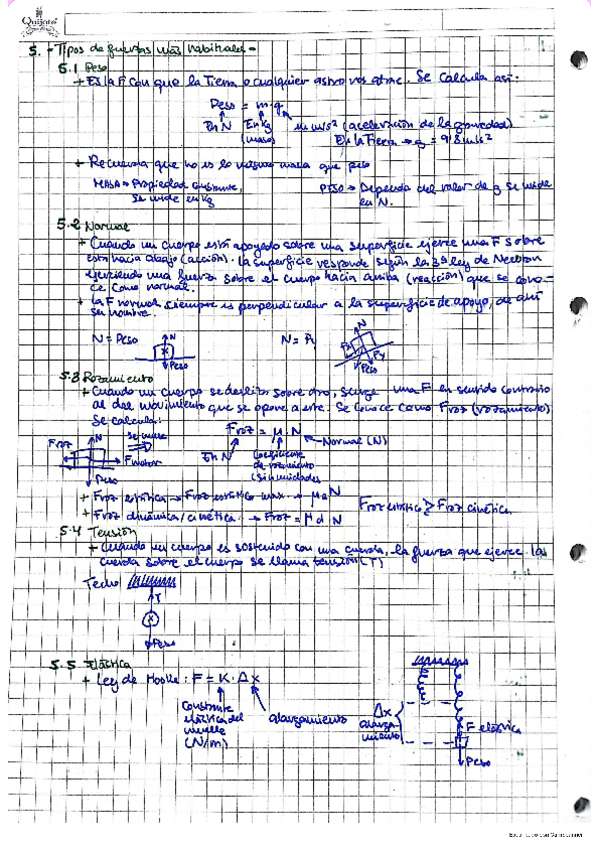 Quijote
5. - Tipos de fuerzas más habituales -
5.1 Peso
+ Es la F con que la Tierra o cualquier astro nos atrae. Se calcula así:
Peso = m·g
En N En Kg (masa) m/s² (aceleración de la gravedad)
En la Tierra → g = 9'8 m/s²
+ Recuerda que no es lo mismo masa que peso
MASA → Propiedad constante, se mide en Kg
PESO → Depende del valor de g se mide en N.
5.2 Normal
+ Cuando un cuerpo está apoyado sobre una superficie ejerce una F sobre
esta hacia abajo (acción). La superficie responde según la 3ª ley de Newton
ejerciendo una fuerza sobre el cuerpo hacia arriba (reacción) que se cono-
ce como normal.
+ La F normal siempre es perpendicular a la superficie de apoyo, de ahí
su nombre.
N = Peso
N
Peso
N = Py
N
Px
Py
Peso
5.3 Rozamiento
+ Cuando un cuerpo se desliza sobre otro, surge una F en sentido contrario
al del movimiento que se opone a este. Se conoce como Froz (rozamiento)
Se calcula:
Froz
N
se mueve
Fmotor
Peso
Froz = μ · N
En N
Coeficiente
de rozamiento
(sin unidades)
Normal (N)
+ Froz estática → Froz estática max. → μe N
+ Froz dinámica/cinética. → Froz = μd · N
Froz estática ≥ Froz cinética.
5.4 Tensión
- Cuando un cuerpo es sostenido con una cuerda, la fuerza que ejerce la
cuerda sobre el cuerpo se llama tensión (T)
Techo
T
Peso
5.5 Elástica
+ Ley de Hooke: F = K · Δx
Constante
elástica del
muelle
(N/m)
alargamiento
Δx
alarga-
miento
F elástica
Peso